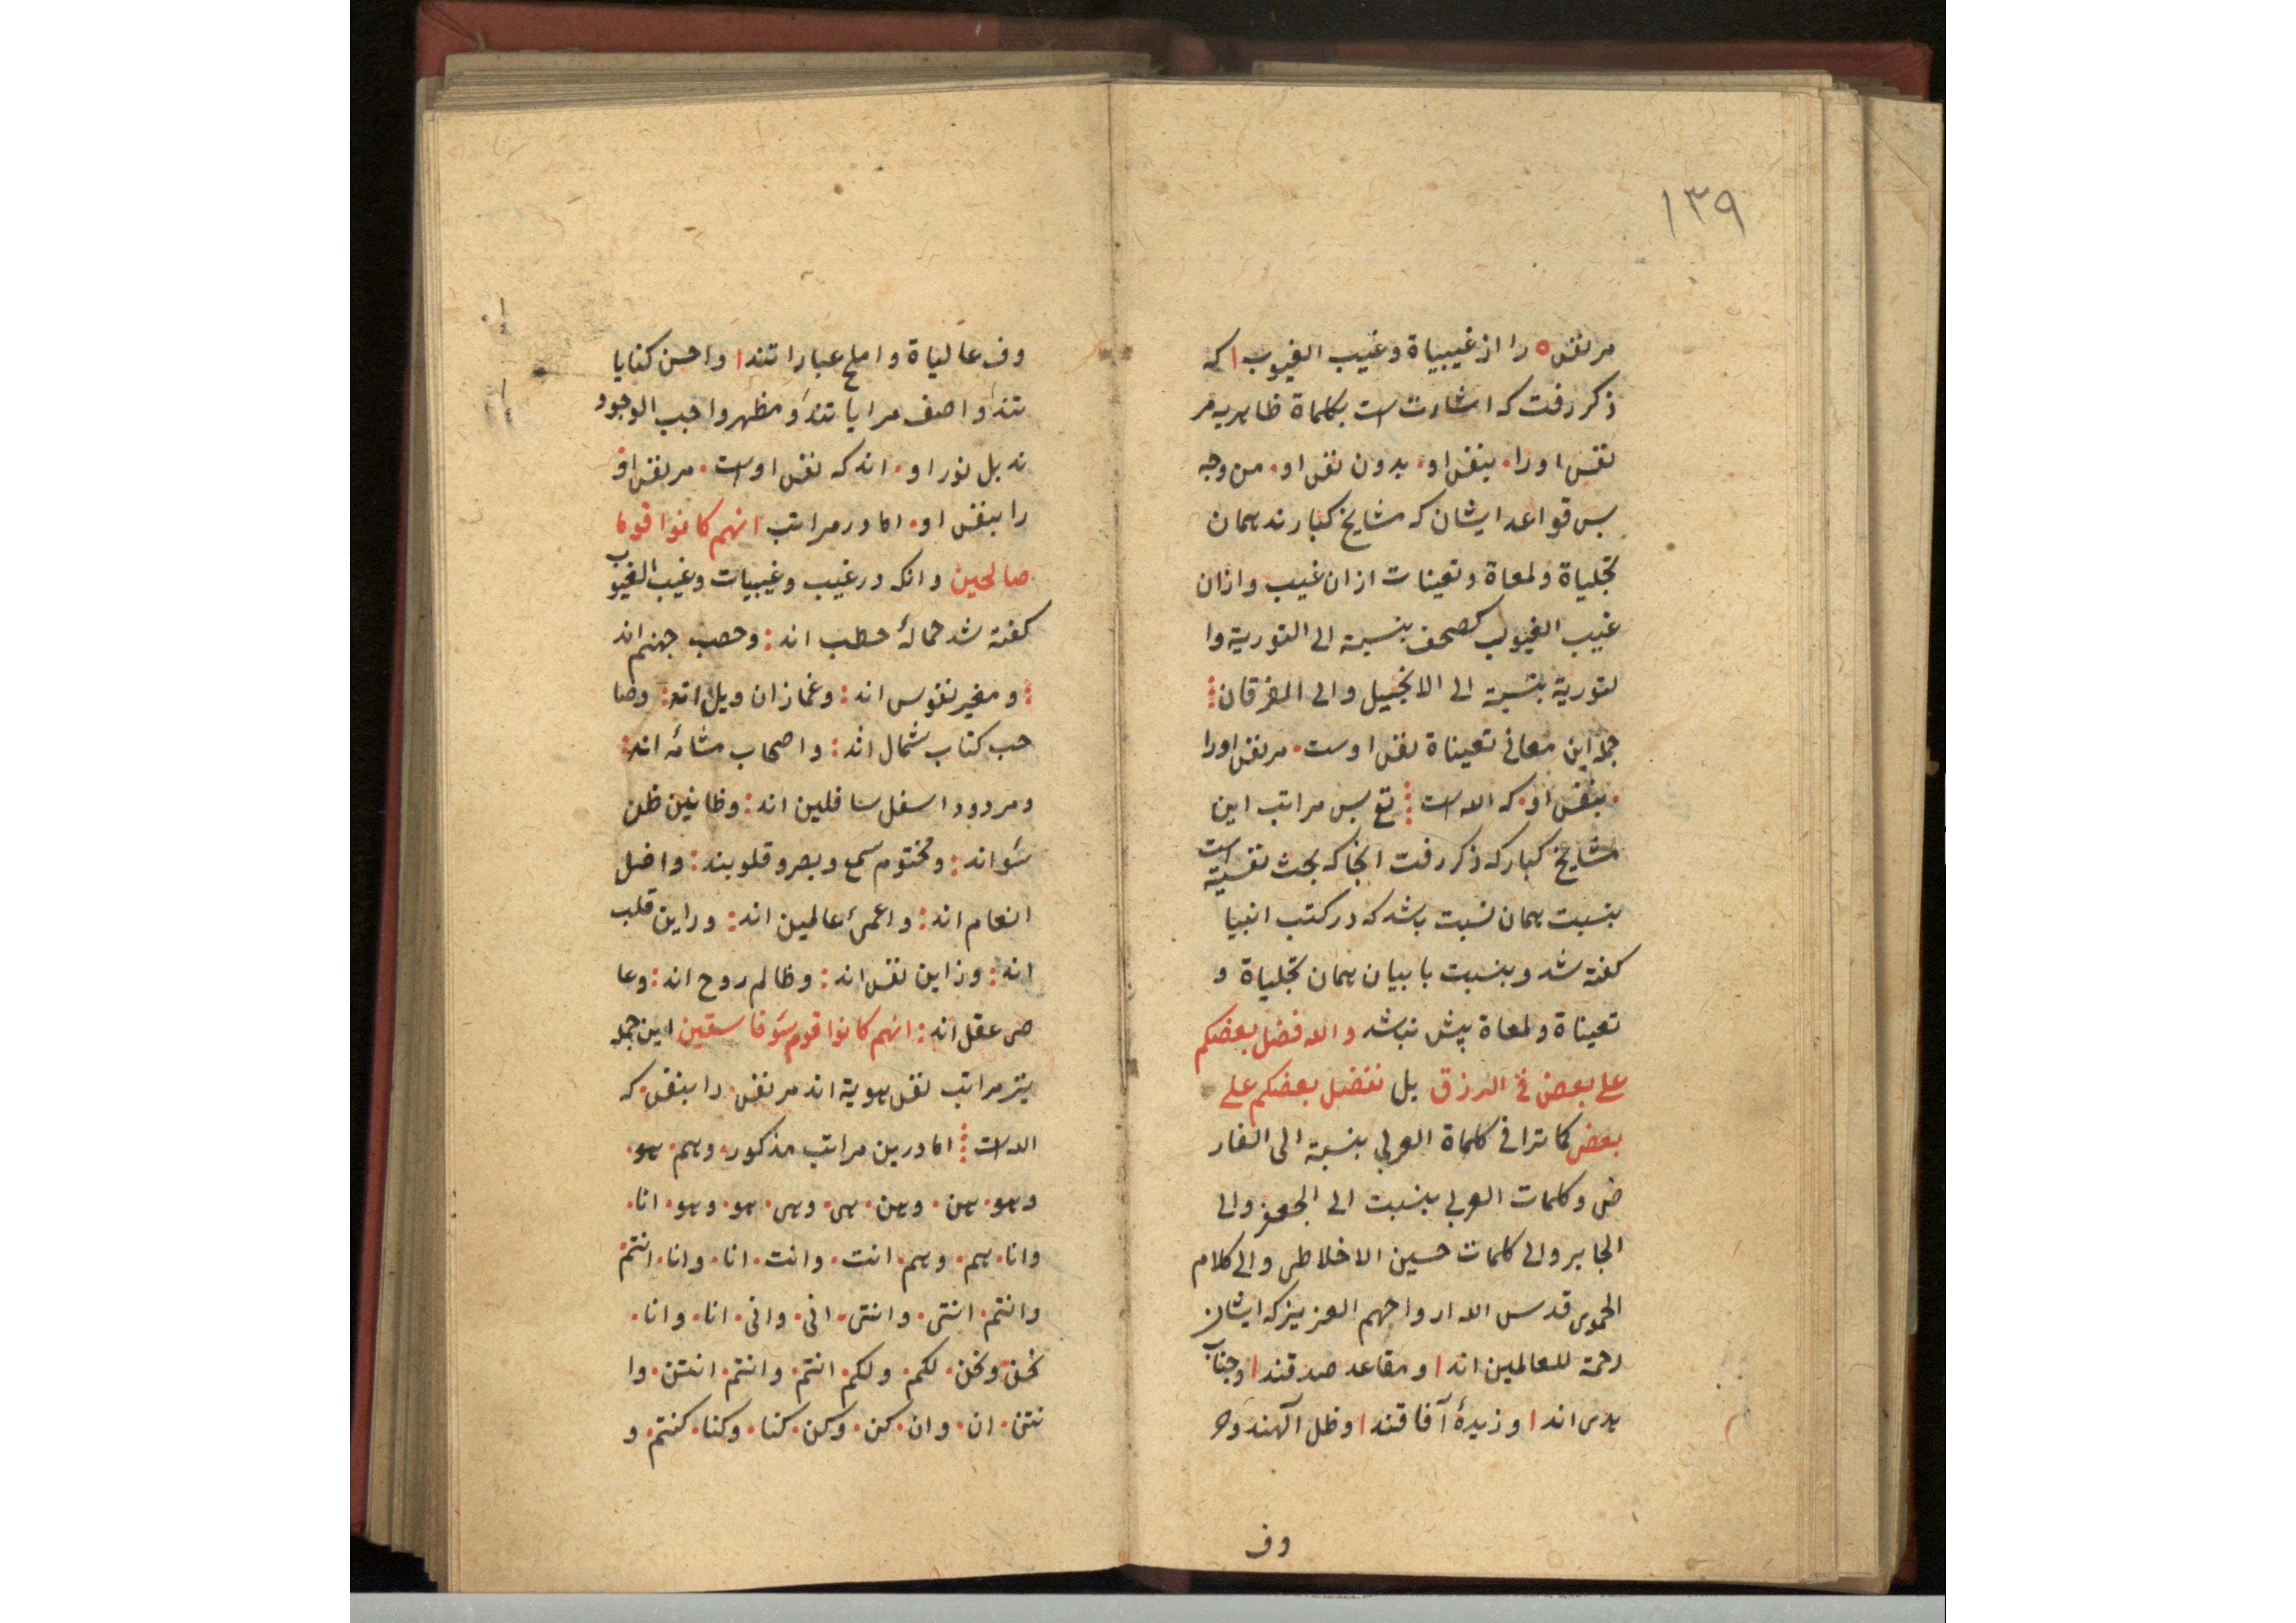 ١٣٩
مر نفس ه را از غیبیاة و غیب الغیوب ا که
ذکر رفت که اشارت است بکلماة ظاهریه مر
نفس او را . بنفس او . بدون نفس او . من وجه
پس قواعد ایشان که مشایخ کبارند همان
تجلیاة و لمعاة و تعینات از ان غیب و از ان
غیب الغیوب کصحف بنسبة الی التوریة وا
لتوریة بنسبة الی الانجیل و الی الفرقان
جمله این معانی تعیناة نفس اوست . مر نفس او را
. بنفس او . که الله است تع پس مراتب این
مشایخ کبار که ذکر رفت انجا که بحث نفسیة است
بنسبت همان نسبت باشد که در کتب انبیا
کفته شد و بنسبت با بیان همان تجلیاة و
تعیناة و لمعاة پیش نباشد و الله فضل بعضکم
علی بعض فی الرزق بل نفضل بعضکم علی
بعض کما ترا فی کلماة العربی بنسبة الی الفار
ض و کلمات العربی بنسبت الی الجعفر و الی
الجابر و الی کلمات حسین الاخلاطی و الی کلام
الحموی قدس الله ارواحهم العزیز که ایشان
رحمة للعالمین اند ا و مقاعد صدقند ا و جناب
یدی اند ا و زبدهٔ آفاقند ا و ظل آلهند و حر
وف
وف عالیاة و املح عباراتند ا و احسن کنایا
تند ا و اصف مرایاتند ا و مظهر واجب الوجود
ند بل نور او . اند که نفس اوست . مر نفس او
را بنفس او . اما در مراتب انهم کانوا قوما
صالحین و انکه در غیب و غیبیات و غیب الغیوب
کفته شد حمالهٔ حطب اند : و حصب جهنم اند
: و مغیر نفوس اند : و غمازان ویل اند : و صا
حب کتاب شمال اند : و اصحاب مشأمه اند :
و مردود اسفل سافلین اند : و ظانین ظن
سَوء اند : و مختوم سمع و بصر و قلوبند : و اضل
انعام اند : و اعمیٔ عالمین اند : و راین قلب
اند : و زاین نفس اند : و ظالم روح اند : و عا
صی عقل اند : انهم کانوا قوم سَوء فاسقین این جمله
نیز مراتب نفس هویة اند مر نفس . را بنفس . که
الله است اما درین مراتب مذکور . و هم . هو .
و هو . هن . و هن . هی . و هی . هو . و هو . انا .
و انا . هم . و هم . انت . و انت . انا . و انا . انتم .
و انتم . انتی . و انتی . انی . و انی . انا . و انا .
نحن . و نحن . لکم . و لکم . انتم . و انتم . انتن . وا
نتن . ان . و ان . کن . و کن . کنا . و کنا . کنتم . و